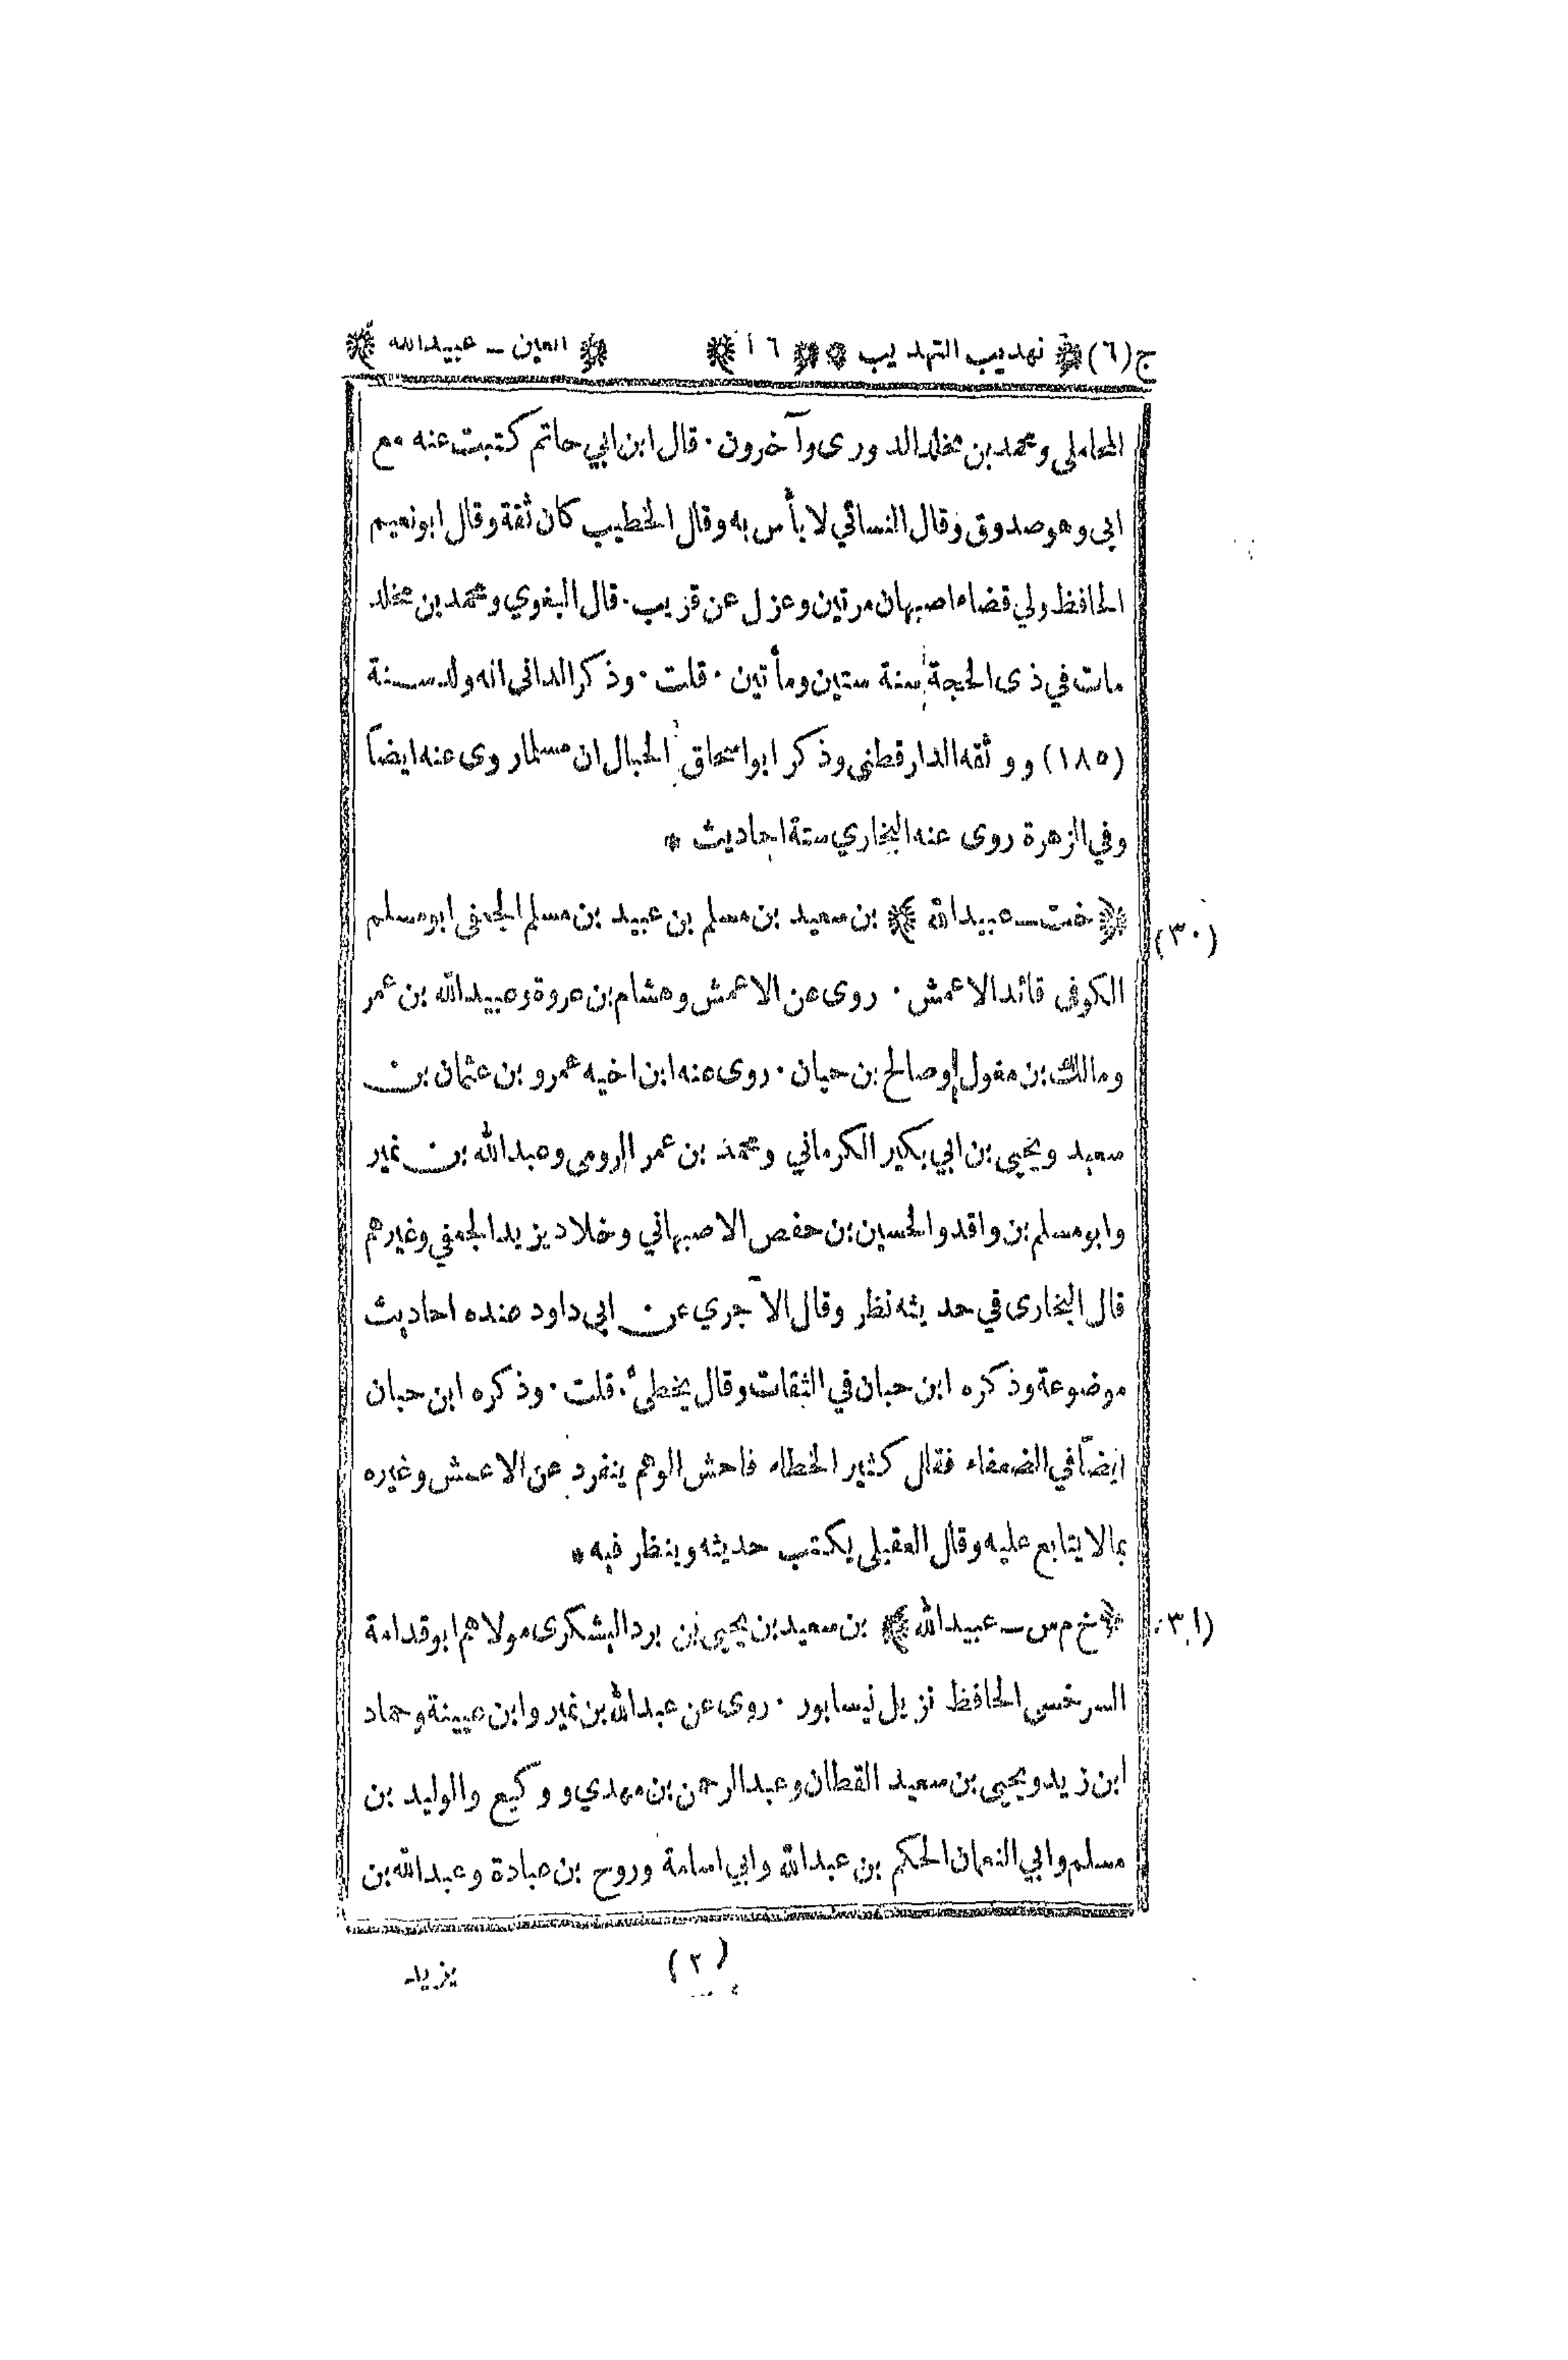 ج(٦) ﴿تهذيب التهذيب﴾ ﴿١٦﴾ ﴿العين ـ عبيدالله﴾
المحاملي ومحمد بن مخلد الدوري وآخرون ۰ قال ابن ابي حاتم كتبت عنه مع
ابي وهو صدوق وقال النسائي لا بأس به وقال الخطيب كان ثقة وقال ابونعيم
الحافظ ولي قضاء اصبهان مرتين وعزل عن قريب ۰ قال البغوي ومحمد بن مخلد
مات في ذى الحجة سنة ستين ومأتين ۰ قلت ۰ وذكر الداني انه ولد سنة
(١٨٥) ووثقه الدارقطني وذكر ابو اسحاق الحبال ان مسلما روى عنه ايضاً
وفي الزهرة روى عنه البخاري ستة احاديث *
(٣٠) ﴿خت ـ عبيدالله﴾ بن سعيد بن مسلم بن عبيد بن مسلم الجعفى ابومسلم
الكوفى قائد الاعمش ۰ روى عن الاعمش وهشام بن عروة وعبيدالله بن عمر
ومالك بن مغول وصالح بن حيان ۰ روى عنه ابن اخيه عمرو بن عثمان بن
سعيد ويحيى بن ابي بكير الكرماني ومحمد بن عمر الرومى وعبدالله بن نمير
وابومسلم بن واقد والحسين بن حفص الاصبهاني وخلاد يزيد الجعفي وغيرهم
قال البخارى في حديثه نظر وقال الآجري عن ابي داود عنده احاديث
موضوعة وذكره ابن حبان في الثقات وقال يخطئ ۰ قلت ۰ وذكره ابن حبان
ايضاً في الضعفاء فقال كثير الخطاء فاحش الوهم ينفرد عن الاعمش وغيره
بمالا يتابع عليه وقال العقيلى يكتب حديثه وينظر فيه *
(٣١) ﴿خ م س ـ عبيدالله﴾ بن سعيد بن يحيى بن برد اليشكرى مولاهم ابوقدامة
السرخسى الحافظ نزيل نيسابور ۰ روى عن عبدالله بن نمير وابن عيينة وحماد
ابن زيد ويحيى بن سعيد القطان وعبدالرحمن بن مهدي ووكيع والوليد بن
مسلم وابي النعمان الحكم بن عبدالله وابي اسامة وروح بن عبادة وعبدالله بن
(٢) يزيد